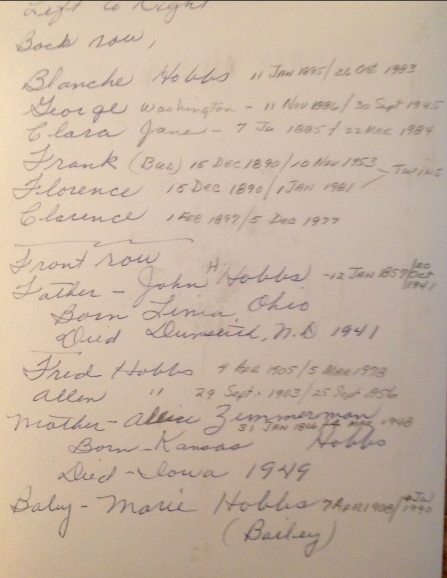 Left to Right
Back row,
Blanche Hobbs 11 JAN 1895/26 Oct. 1983
George Washington - 11 Nov 1886/30 Sept 1945
Clara Jane - 7 Ju 1885/22 MAR 1984
Frank (Bud) 15 DEC 1890/10 Nov 1953
Twins
Florence 15 Dec 1890/1 JAN 1981
Clarence 1 FEB 1897/5 Dec 1977
Front row
Father - John H. Hobbs - 12 JAN 1857/20 Oct 1941
Born Lima, Ohio
Died Dunseith, N.D 1941
Fred Hobbs 4 APR 1905/5 MAR 1978
Allen " 29 Sept. 1903/25 Sept 1956
Mother - Allice Zimmerman
31 JAN 1866/ MAR 1948
Born - Kansas Hobbs
Died - Iowa 1949
Baby - Marie Hobbs 7 APR 1908/ 1990
(Bailey)